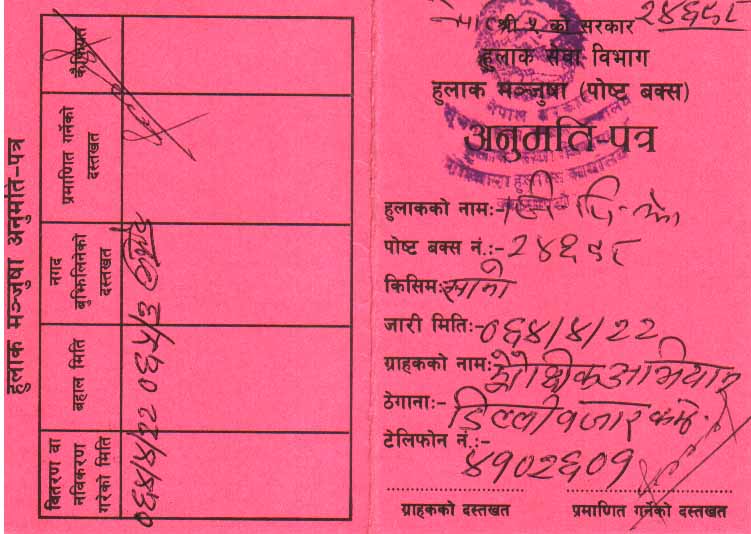 हुलाक मञ्जुषा अनुमति-पत्र
वितरण वा नविकरण गरेको मिति
बहाल मिति
नगद बुझिलिनेको दस्तखत
प्रमाणित गर्नेको दस्तखत
कैफियत
०६४/४/२२
०६५/३
२४६९८
श्री ५ को सरकार
हुलाक सेवा विभाग
हुलाक मञ्जुषा (पोष्ट बक्स)
अनुमति-पत्र
हुलाकको नाम:- जि.पि.ओ.
पोष्ट बक्स नं.:- २४६९८
किसिम: सानो
जारी मिति:- ०६४/४/२२
ग्राहकको नाम: शैक्षिक अभियान
ठेगाना:- डिल्लीबजार
टेलिफोन नं.:-
४९०२६०१
ग्राहकको दस्तखत
प्रमाणित गर्नेको दस्तखत